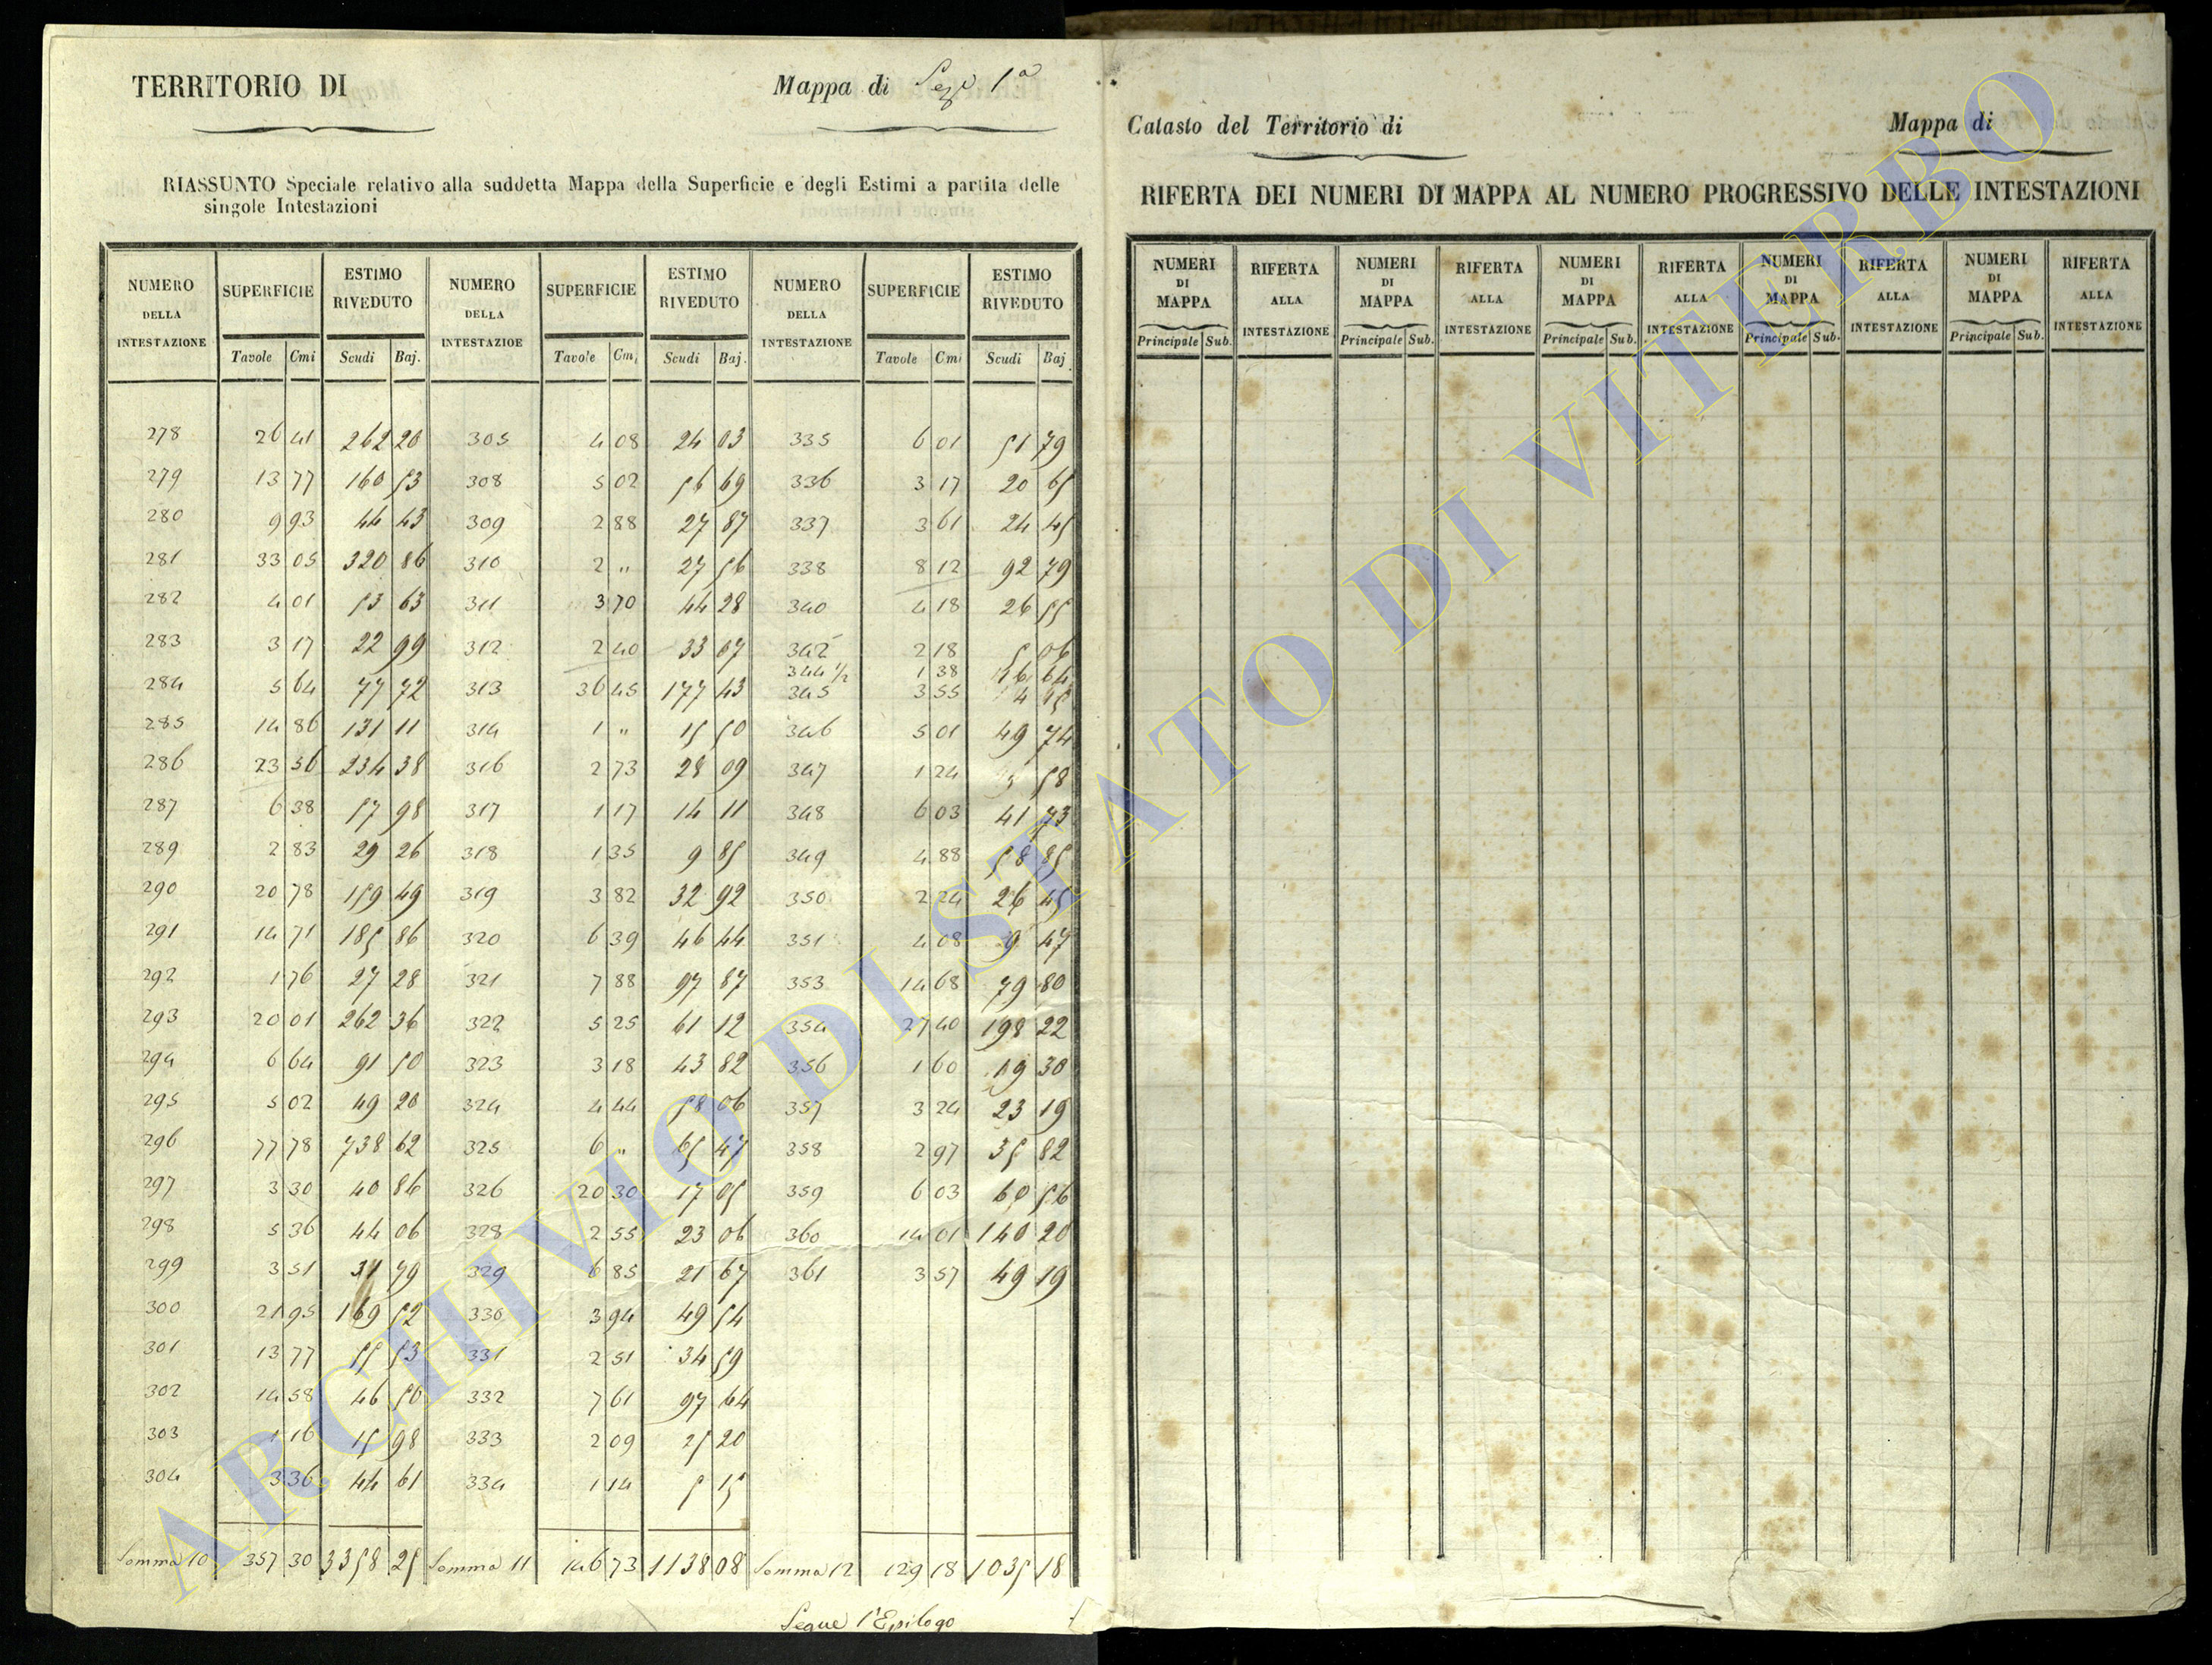 TERRITORIO DI
Mappa di Sez.e 1a
RIASSUNTO Speciale relativo alla suddetta Mappa della Superficie e degli Estimi a partita delle
singole Intestazioni
NUMERO DELLA INTESTAZIONE SUPERFICIE ESTIMO RIVEDUTO NUMERO DELLA INTESTAZIOE SUPERFICIE ESTIMO RIVEDUTO NUMERO DELLA INTESTAZIONE SUPERFICIE ESTIMO RIVEDUTO
Tavole Cmi Scudi Baj. Tavole Cmi Scudi Baj. Tavole Cmi Scudi Baj.
278 26 41 262 20 305 4 08 24 03 335 6 01 51 79
279 13 77 160 53 308 5 02 56 69 336 3 17 20 65
280 9 93 44 43 309 2 88 27 87 337 3 61 24 45
281 33 05 320 86 310 2 " 27 56 338 8 12 92 79
282 4 01 53 63 311 3 70 44 28 340 4 18 26 55
283 3 17 22 99 312 2 40 33 07 342 2 18 5 06
344 1/2 1 38 16 64
284 5 64 77 72 313 36 45 177 43 345 3 55 4 45
285 14 86 131 11 314 1 " 15 50 346 5 01 49 74
286 23 36 234 38 316 2 73 28 09 347 1 24 58
287 6 38 57 98 317 1 17 14 11 348 6 03 41 73
289 2 83 29 26 318 1 35 9 85 349 4 88 58 85
290 20 78 159 49 319 3 82 32 92 350 2 24 26 45
291 14 71 185 86 320 6 39 46 44 351 4 08 9 47
292 1 76 27 28 321 7 88 97 87 353 14 68 79 80
293 20 01 262 36 322 5 25 61 12 354 27 40 198 22
294 6 64 91 50 323 3 18 43 82 356 1 60 19 30
295 5 02 49 20 324 4 44 58 06 357 3 24 23 19
296 77 78 738 62 325 6 " 65 47 358 2 97 35 82
297 3 30 40 86 326 20 30 17 05 359 6 03 60 56
298 5 36 44 06 328 2 55 23 06 360 14 01 140 20
299 3 51 31 79 329 6 85 21 67 361 3 57 49 19
300 21 95 169 52 330 3 94 49 54
301 13 77 55 53 331 2 51 34 59
302 14 58 46 50 332 7 61 97 64
303 1 16 15 98 333 2 09 25 20
304 3 36 44 61 334 1 14 5 15
Somma 10 357 30 3358 25 Somma 11 146 73 1138 08 Somma 12 129 18 1035 18
Segue l'Epilogo
Catasto del Territorio di
Mappa di
RIFERTA DEI NUMERI DI MAPPA AL NUMERO PROGRESSIVO DELLE INTESTAZIONI
NUMERI DI MAPPA RIFERTA ALLA INTESTAZIONE NUMERI DI MAPPA RIFERTA ALLA INTESTAZIONE NUMERI DI MAPPA RIFERTA ALLA INTESTAZIONE NUMERI DI MAPPA RIFERTA ALLA INTESTAZIONE NUMERI DI MAPPA RIFERTA ALLA INTESTAZIONE
Principale Sub. Principale Sub. Principale Sub. Principale Sub. Principale Sub.
ARCHIVIO DI STATO DI VITERBO